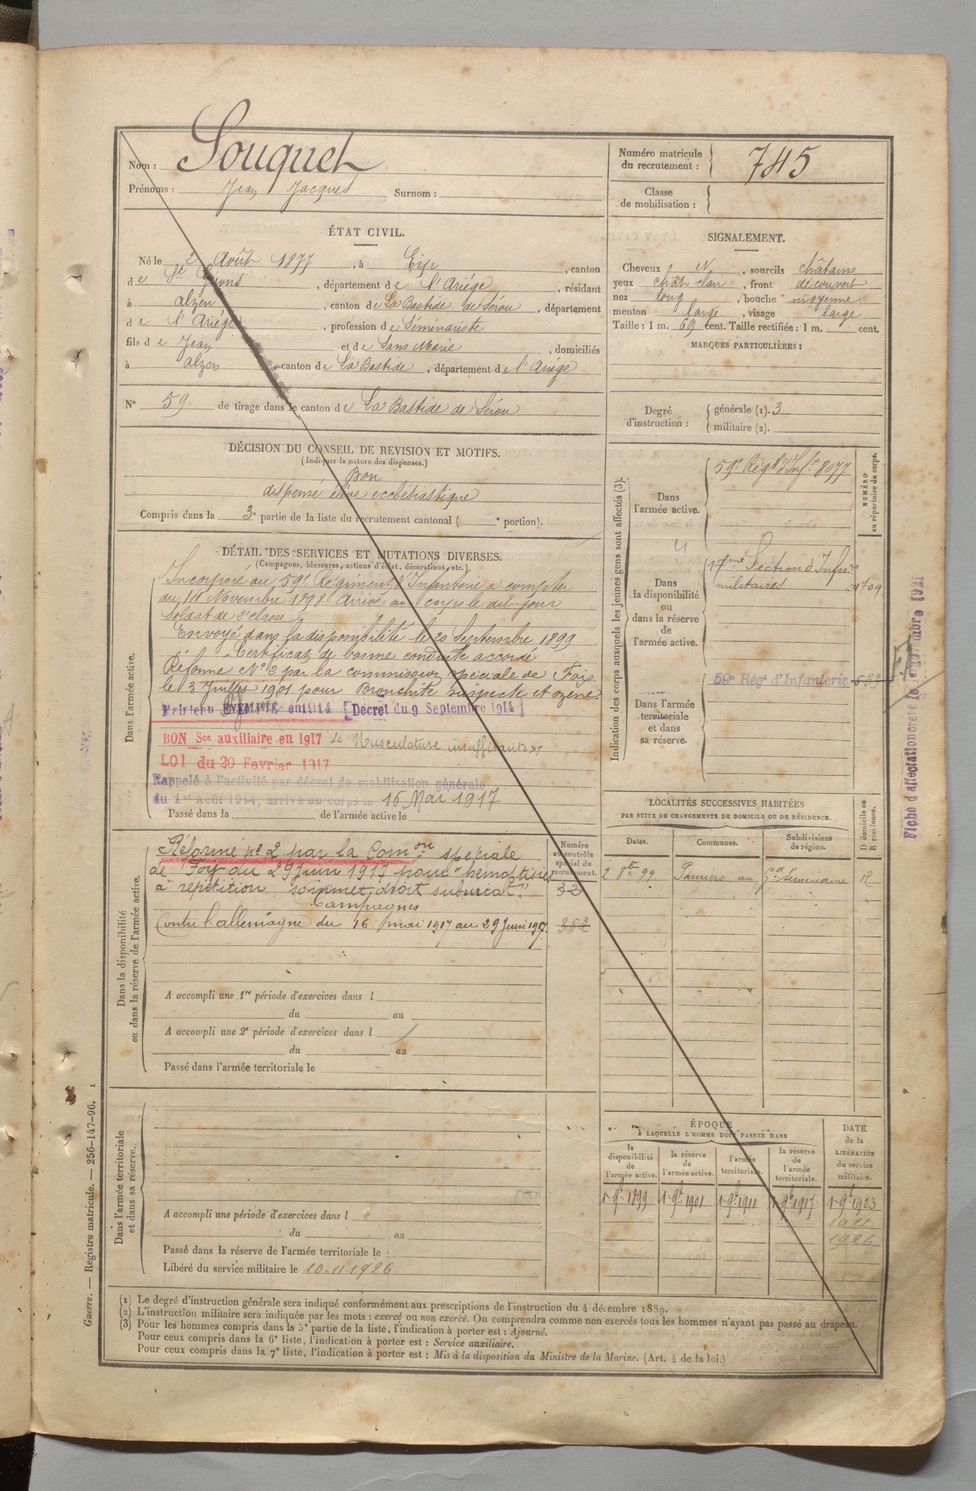 Nom : Souquet
Prénoms : Jean Jacques Surnom :
Numéro matricule
du recrutement : 745
Classe
de mobilisation :
ÉTAT CIVIL.
Né le 2 Août 1877, à Eip, canton
de St Girons, département de l'Ariège, résidant
à Alzen, canton de La Bastide de Sérou, département
de l'Ariège, profession de Séminariste
fils de Jean et de Sans Marie, domiciliés
à Alzen, canton de La Bastide, département de l'Ariège
N° 59 de tirage dans le canton de La Bastide de Sérou
SIGNALEMENT.
Cheveux N, sourcils châtains
yeux chât clair, front découvert
nez long, bouche moyenne
menton large, visage large
Taille : 1 m. 69 cent. Taille rectifiée : 1 m. cent.
MARQUES PARTICULIÈRES :
Degré
d'instruction :
générale (1). 3
militaire (2).
DÉCISION DU CONSEIL DE REVISION ET MOTIFS.
(Indiquer la nature des dispenses.)
Bon
dispensé élève ecclésiastique
Compris dans la 3e partie de la liste du recrutement cantonal ( e portion).
DÉTAIL DES SERVICES ET MUTATIONS DIVERSES.
(Campagnes, blessures, actions d'éclat, décorations, etc.)
Dans l'armée active.
Incorporé au 59e Régiment d'Infanterie à compter
du 14 Novembre 1898. Arrivé au corps le dit jour
soldat de 2e classe
Envoyé dans la disponibilité le 20 Septembre 1899
Certificat de bonne conduite accordé
Réformé N° 2 par la commission spéciale de Foix
le 3 Juillet 1901 pour Bronchite suspecte et ozène.
Maintenu EXEMPTÉ en 1914 [Décret du 9 Septembre 1914]
BON Sce auxiliaire en 1917 Musculature insuffisante
LOI du 20 Fevrier 1917
Rappelé à l'activité par décret de mobilisation générale
du 1er Août 1914, arrivé au corps le 16 Mai 1917
Passé dans la de l'armée active le
Indication des corps auxquels les jeunes gens sont affectés (3).
NUMÉRO
au répertoire du corps.
Dans
l'armée active.
59e Régt d'Infie 8077
Dans
la disponibilité
ou
dans la réserve
de
l'armée active.
17me Section d'Infrs
militaires 31709
Dans l'armée
territoriale
et dans
sa réserve.
59e Régt d'Infanterie 533
Fiche d'affectation créée le Septembre 1921
LOCALITÉS SUCCESSIVES HABITÉES
PAR SUITE DE CHANGEMENTS DE DOMICILE OU DE RÉSIDENCE.
Dates. Communes. Subdivisions
de région. D domicile ou
R résidence.
2 8bre 99 Pamiers au Gd Séminaire R
Dans la disponibilité
ou dans la réserve de l'armée active.
Numéro
au contrôle
spécial du
recrutement.
Réformé n° 2 par la Comon spéciale
de Foix du 29 juin 1917 pour "hémoptysies
à répétition sommet droit submat"
Campagnes
Contre l'allemagne du 16 mai 1917 au 29 Juin 1917
32
352
A accompli une 1re période d'exercices dans l
du au
A accompli une 2e période d'exercices dans l
du au
Passé dans l'armée territoriale le
Dans l'armée territoriale
et dans sa réserve.
A accompli une période d'exercices dans l
du au
Passé dans la réserve de l'armée territoriale le
Libéré du service militaire le 10.11.1926
ÉPOQUE
A LAQUELLE L'HOMME DOIT PASSER DANS
la
disponibilité
de
l'armée active.
la réserve
de
l'armée active.
l'armée
territoriale.
la réserve
de
l'armée
territoriale.
DATE
de la
LIBÉRATION
du service
militaire.
1er 9bre 1899 1er 9bre 1901 1er 9bre 1911 1er 9bre 1917 1er 9bre 1923
10.11
1926
Guerre. — Registre matricule. — 256-147-96. 1
(1) Le degré d'instruction générale sera indiqué conformément aux prescriptions de l'instruction du 4 décembre 1889.
(2) L'instruction militaire sera indiquée par les mots : exercé ou non exercé. On comprendra comme non exercés tous les hommes n'ayant pas passé au drapeau.
(3) Pour les hommes compris dans la 5e partie de la liste, l'indication à porter est : Ajourné.
Pour ceux compris dans la 6e liste, l'indication à porter est : Service auxiliaire.
Pour ceux compris dans la 7e liste, l'indication à porter est : Mis à la disposition du Ministre de la Marine. (Art. 4 de la loi.)